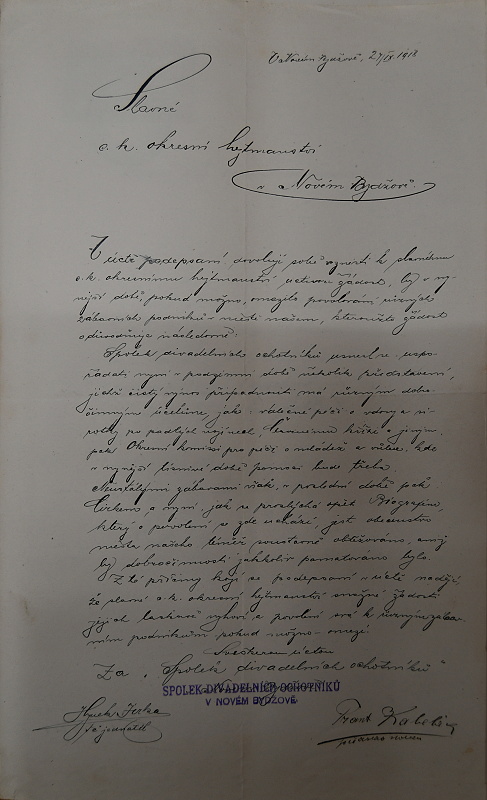 V Novém Bydžově, 27/IX. 1918
Slavné
c. k. okresní hejtmanství
v Novém Bydžově.
V úctě podepsaní dovolují sobě vznésti k slavnému
c. k. okresnímu hejtmanství uctivou žádost, by v ny-
nější době, pokud možno, omezilo povolování různých
zábavních podniků v městě našem, kteroužto žádost
odůvodňuje následovně:
Spolek divadelních ochotníků usnesl se uspo-
řádati nyní v podzimní době několik představení,
jichž čistý výnos připadnouti má různým dobro-
činným účelům, jako: válečné péči o vdovy a si-
rotky po padlých vojínech, Červenému kříži a jiným,
pak Okresní komisi pro péči o mládež a vůbec, kde
v nynější době pomoci bude třeba.
Neustálými zábavami však, v poslední době pak
Cirkem a nyní jak se proslýchá opět Biografem,
který o povolení se zde uchází, jest obecenstvo
města našeho téměř soustavně obtěžováno, aniž
by dobročinnosti jakkoliv pamatováno bylo.
Z té příčiny kojí se podepsaní v úctě nadějí,
že slavné c. k. okresní hejtmanství snažné žádosti
jejich laskavě vyhoví a povolení své k různým zába-
vním podnikům pokud možno omezí.
S veškerou úctou
Za "Spolek divadelních ochotníků"
v Novém Bydžově
SPOLEK DIVADELNÍCH OCHOTNÍKŮ
V NOVÉM BYDŽOVĚ
t. č. jednatel
Frant.